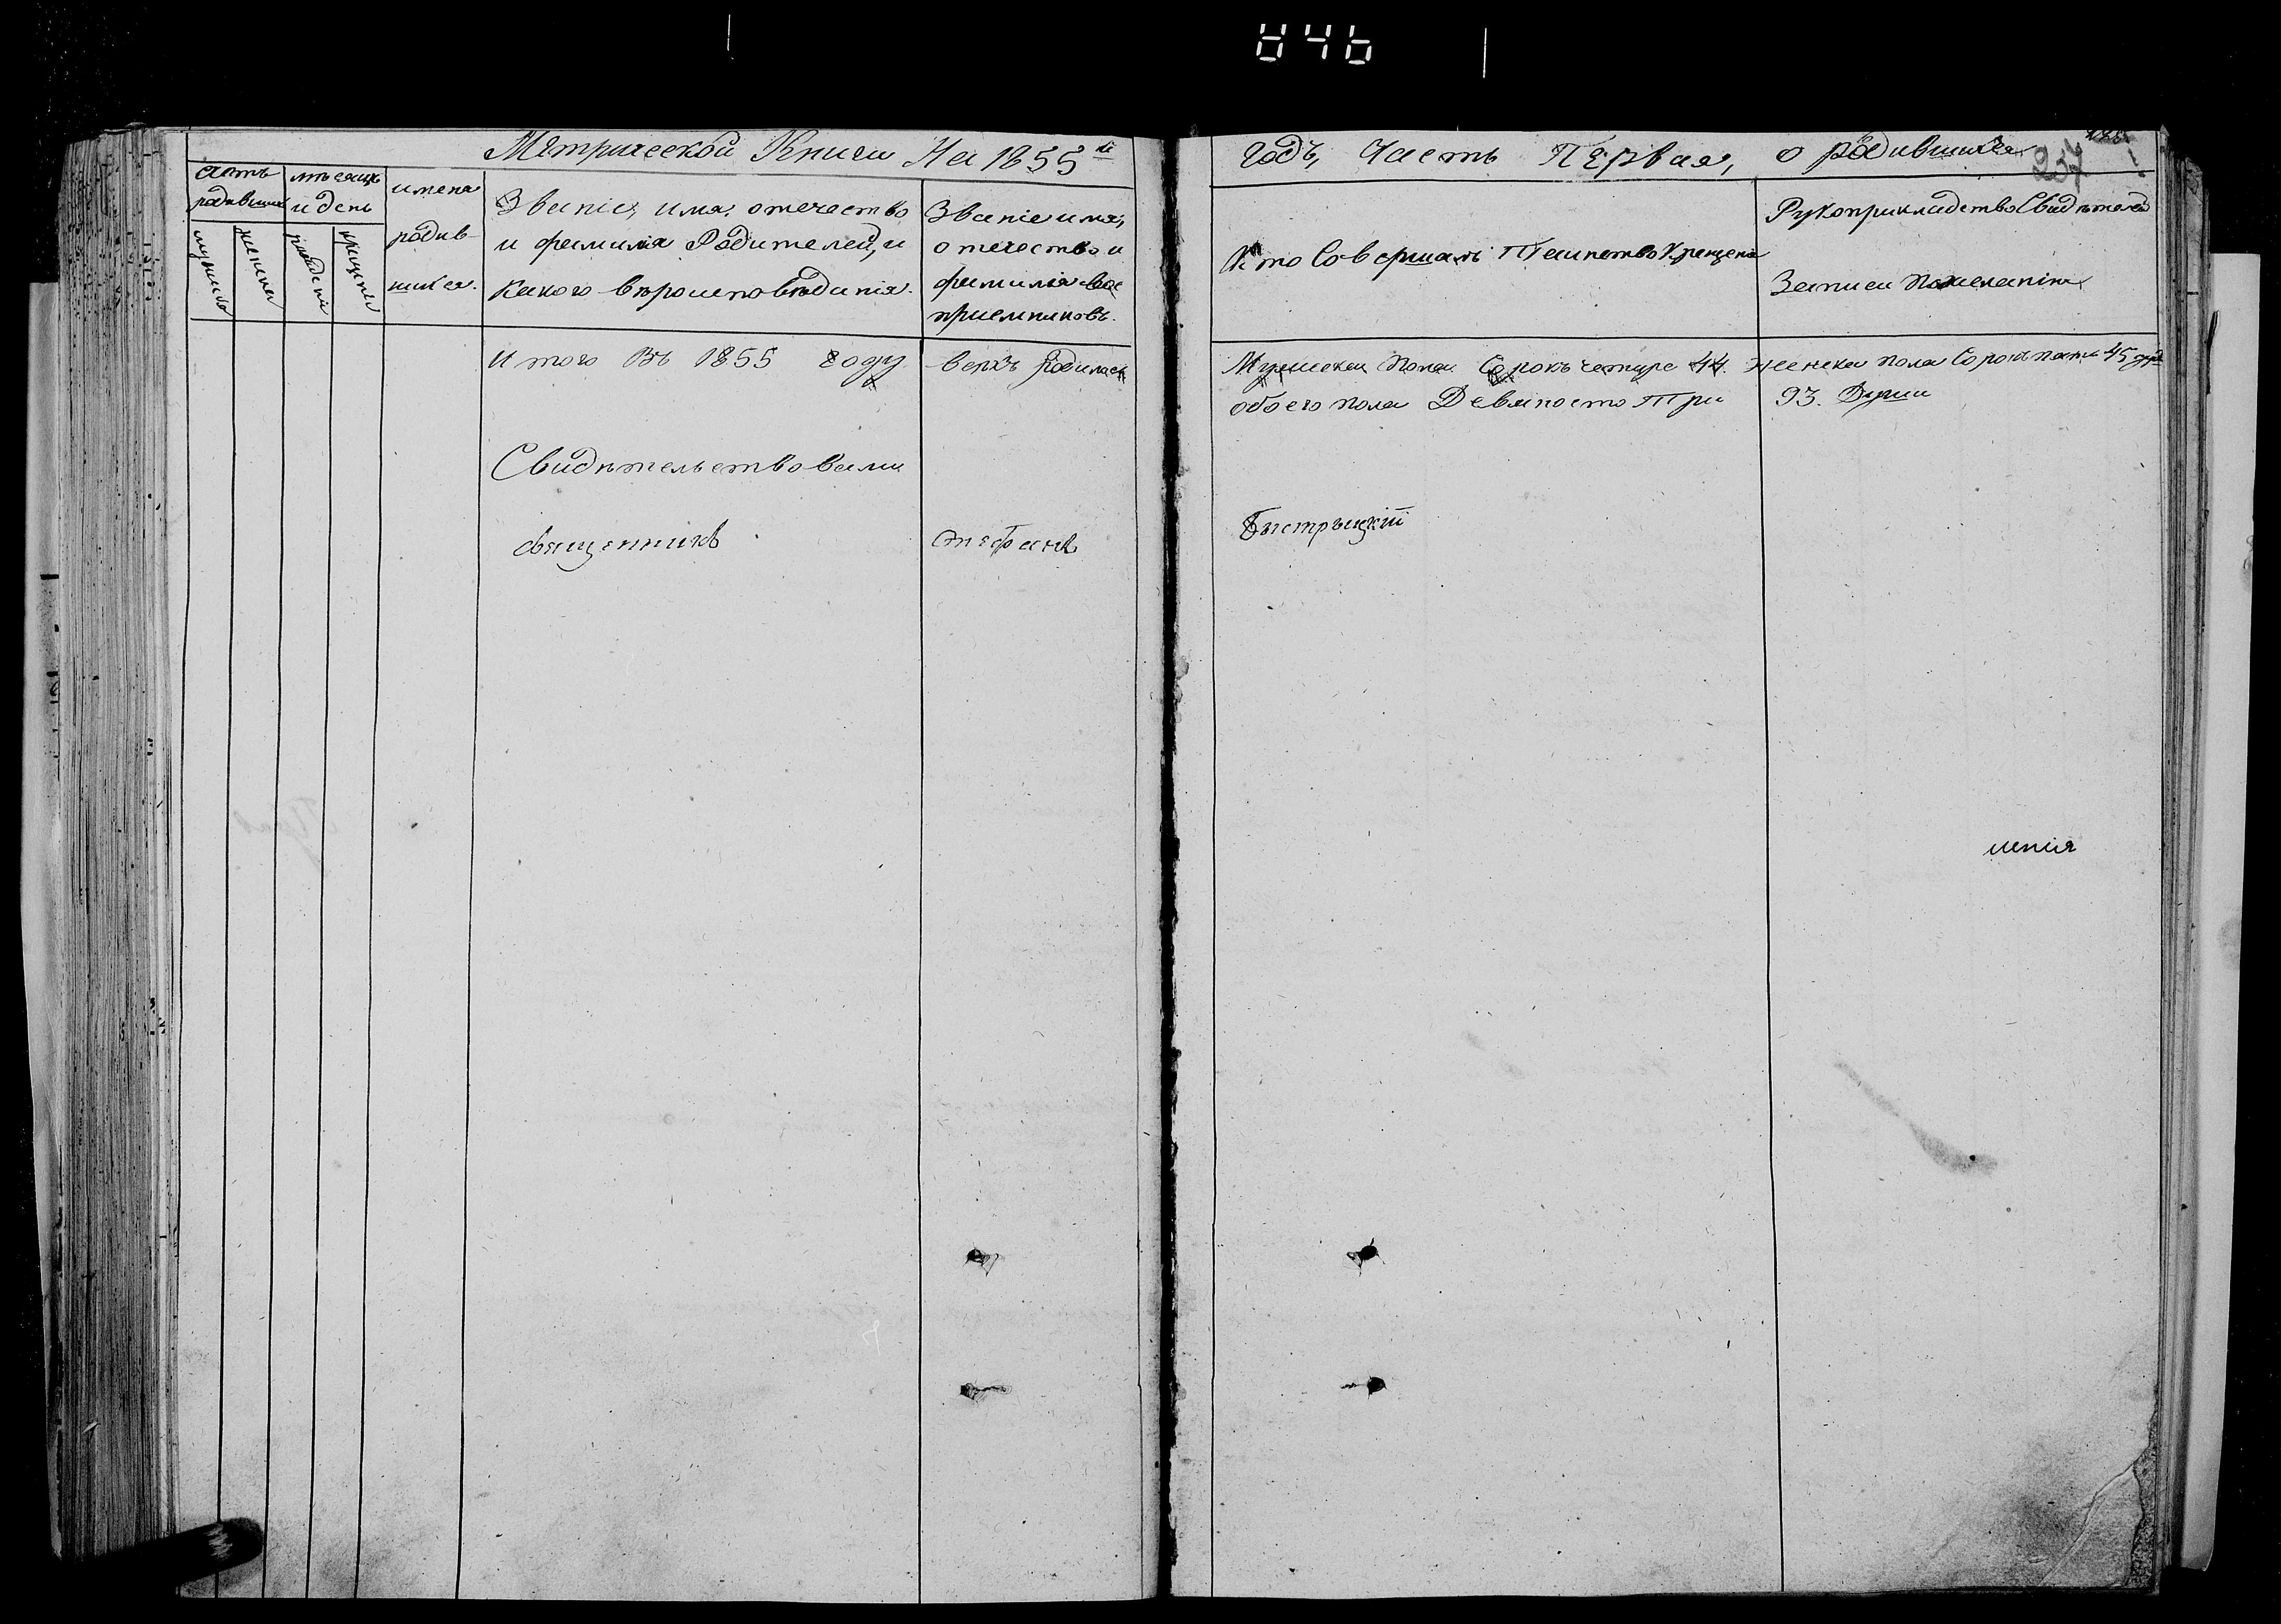 846
Метрической Книги На 1855 й
годъ, Часть Первая, о родившихся
237
родившихся
мѣсяцъ
и день
имена
родив-
шихся.
Званіе, имя, отечество
и фамилія Родителей, и
какого вѣроисповѣданія.
Званіе имя,
отечество и
фамилія вос
приемниковъ.
Кто Совершалъ Таинство Крещенія
Рукоприкладство Свидѣтелей
Записи Пожеланію
мужеска
женска
рожденія
крещенія
Итого Въ 1855 году
всѣхъ родилось
Мужеска Пола Сорокъ четыре 44. женска пола Сорокъ пять 45
обоего пола Девяносто Три 93. Души
Свидѣтельствовали
священникъ
Стефанъ
Быстрыцкій
ленія